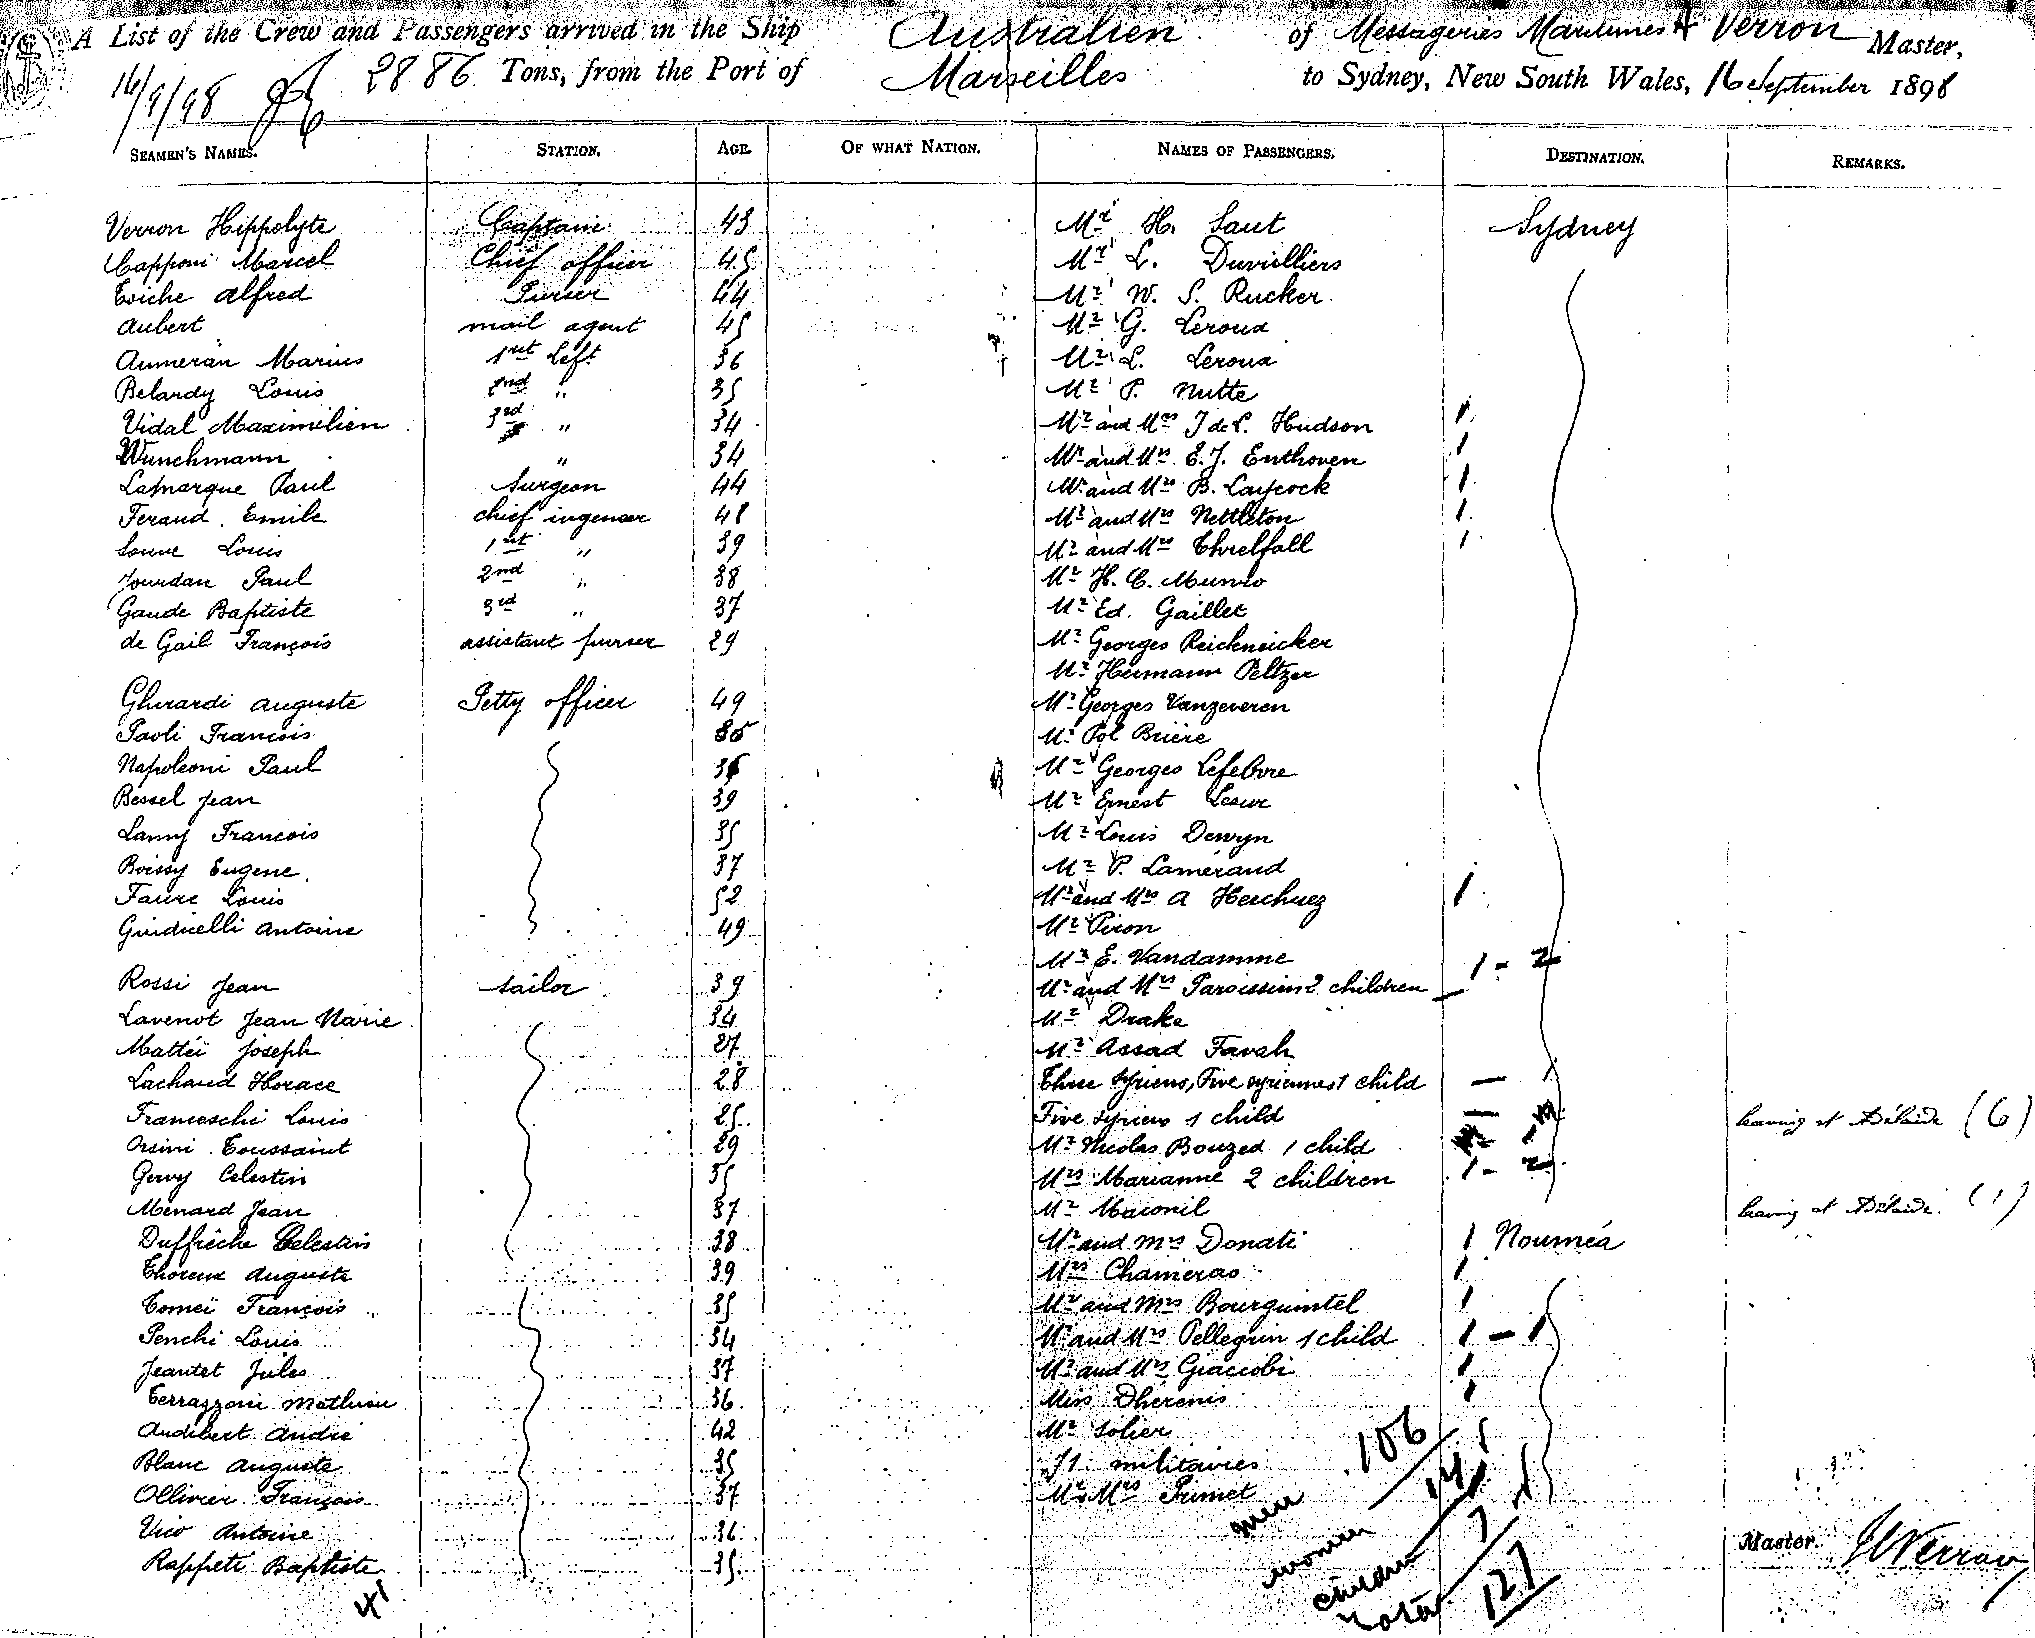 A List of the Crew and Passengers arrived in the Ship Australien of Messageries Maritimes Verron Master,
16/9/98 2886 Tons, from the Port of Marseilles to Sydney, New South Wales, 16 September 1898
SEAMEN'S NAMES. STATION. AGE. OF WHAT NATION. NAMES OF PASSENGERS. DESTINATION. REMARKS.
Verron Hippolyte Captain 43 Mr H. Saut Sydney
Capponi Marcel Chief officer 45 Mr L. Duvilliers
Esiche Alfred Purser 44 Mr W. S. Rucker
Aubert mail agent 45 Mr G. Leroux
Aumeran Marius 1st Left 36 Mr L. Leroux
Belardy Louis 2nd " 35 Mr P. Nutte
Vidal Maximilien 3rd " 34 Mr and Mrs J de L. Hudson 1
Wunchmann " 34 Mr and Mrs E. J. Enthoven 1
Lamarque Paul Surgeon 44 Mr and Mrs B. Laycock 1
Feraud Emile chief ingeneer 48 Mr and Mrs Nettleton 1
Louis 1st " 39 Mr and Mrs Threlfall 1
Jourdan Paul 2nd " 38 Mr H. C. Munro
Gaude Baptiste 3rd " 37 Mr Ed. Gaillet
de Gail François assistant purser 29 Mr Georges Reichneicker
Mr Hermann Peltzer
Ghirardi Auguste Petty officer 49 Mr Georges Vanzeveren
Paoli Francois 35 Mr Pol Brière
Napoleoni Paul 36 Mr Georges Lefebvre
Bessel Jean 39 Mr Ernest Lesur
Lanny Francois 35 Mr Louis Dewyn
Boissy Eugene 37 Mr P. Lamerand
Faure Louis 52 Mr and Mrs A Herchuez 1
Guidicelli Antoine 49 Mr Piron
Mr E. Vandamme
Rossi Jean sailor 39 Mr and Mrs Paroissien 2 children 1 - 2
Lavenot Jean Marie 34 Mr Drake
Matteï Joseph 27 Mr Assad Farah
Lachaud Horace 28 Three syriens, Five syriennes 1 child
Franceschi Louis 25 Five syriens 1 child leaving at Adélaide (6)
Orsini Toussaint 29 Mr Nicolas Bouzed 1 child
Gervy Celestin 35 Mrs Marianne 2 children 1 - 2
Menard Jean 37 Mr Maconil leaving at Adélaide (1)
Duffrèche Celestin 38 Mr and Mrs Donati 1 Nouméa
Thoreux Auguste 39 Mrs Chameras 1
Tomeï François 35 Mr and Mrs Bourguintel 1
Penchi Louis 34 Mr and Mrs Pellegrin 1 child 1 - 1
Jeantet Jules 37 Mr and Mrs Giaccobi 1
Terrazzoni Mathieu 36 Miss Dherenis 1
Audibert André 42 Mr Solier
Blanc Auguste 35 51 militaires
Ollivier François 37 Mr & Mrs Pumet 1
Vico Antoine 36
Rappeti Baptiste 35
41
men 106
women 14
children 7
Total 127
Master. H Verron